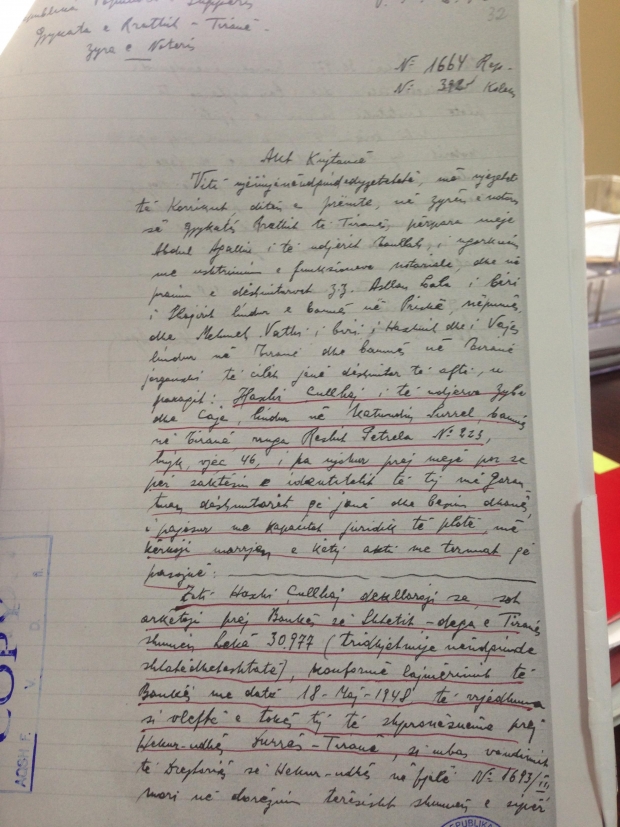 Gjykata e Rrethit - Tiranë
Zyra e Noteris
32
Nº 1664 Rep.
Nº
Akt
Vitë njëmijënëndqinddedyzetetetë, më njezetë
të Korrikut ditën e prëmte, në zyrën e noteris
së Gjykatës Rrethit të Tiranës, përpara meje
Abdul i të ndjerit i ngarkuem
me ushtrimin e funksioneve notoriale, dhe në
pranin e dëshmitarvet Z.Z. Asllan Lala i biri
i lindur e banues në Priskë, nëpunës,
dhe Mehmet i biri i dhe i
lindur në Tiranë dhe banues në Tiranë
të cilët janë dëshmitar të aftë, u
paraqit: Haxhi Cullhaj i të ndjerve Zyber
dhe Caje, lindur në Katundin Surrel, banues
në Tiranë rruga Reshit Petrela Nº 223,
vjeç 46, i pa njohur prej mejë por se
për saktësin e identitetit të tij më garan
tuen dëshmitarët që janë dhe besim dhanës,
i pajosur me kapacitet juridik të plotë, më
kërkoji marrjen e këtij akti me termat që
pasojnë:
Zoti Haxhi Cullhaj deklaroji se, sot
arketoji prej Bankës së Shtetit - dega e Tiranës
shumën Lekë 30.977 (tridhjetmijë e nëndqinde
shtatëdhetështatë), konformë lajmërimit të
Bankës me datë 18-Maj-1948, të vrjedhuna
si vleftë e tokës tij të shpronësueme prej
Hekur-udhës Durrës-Tiranë, si mbas vendimit
të Drejtoriës së Hekur-udhës në fjalë Nº 1693/III
mori në dorëzim tërësisht shumën e sipër
COPY
AQSH F.
V.
D.
REPUBLIKA